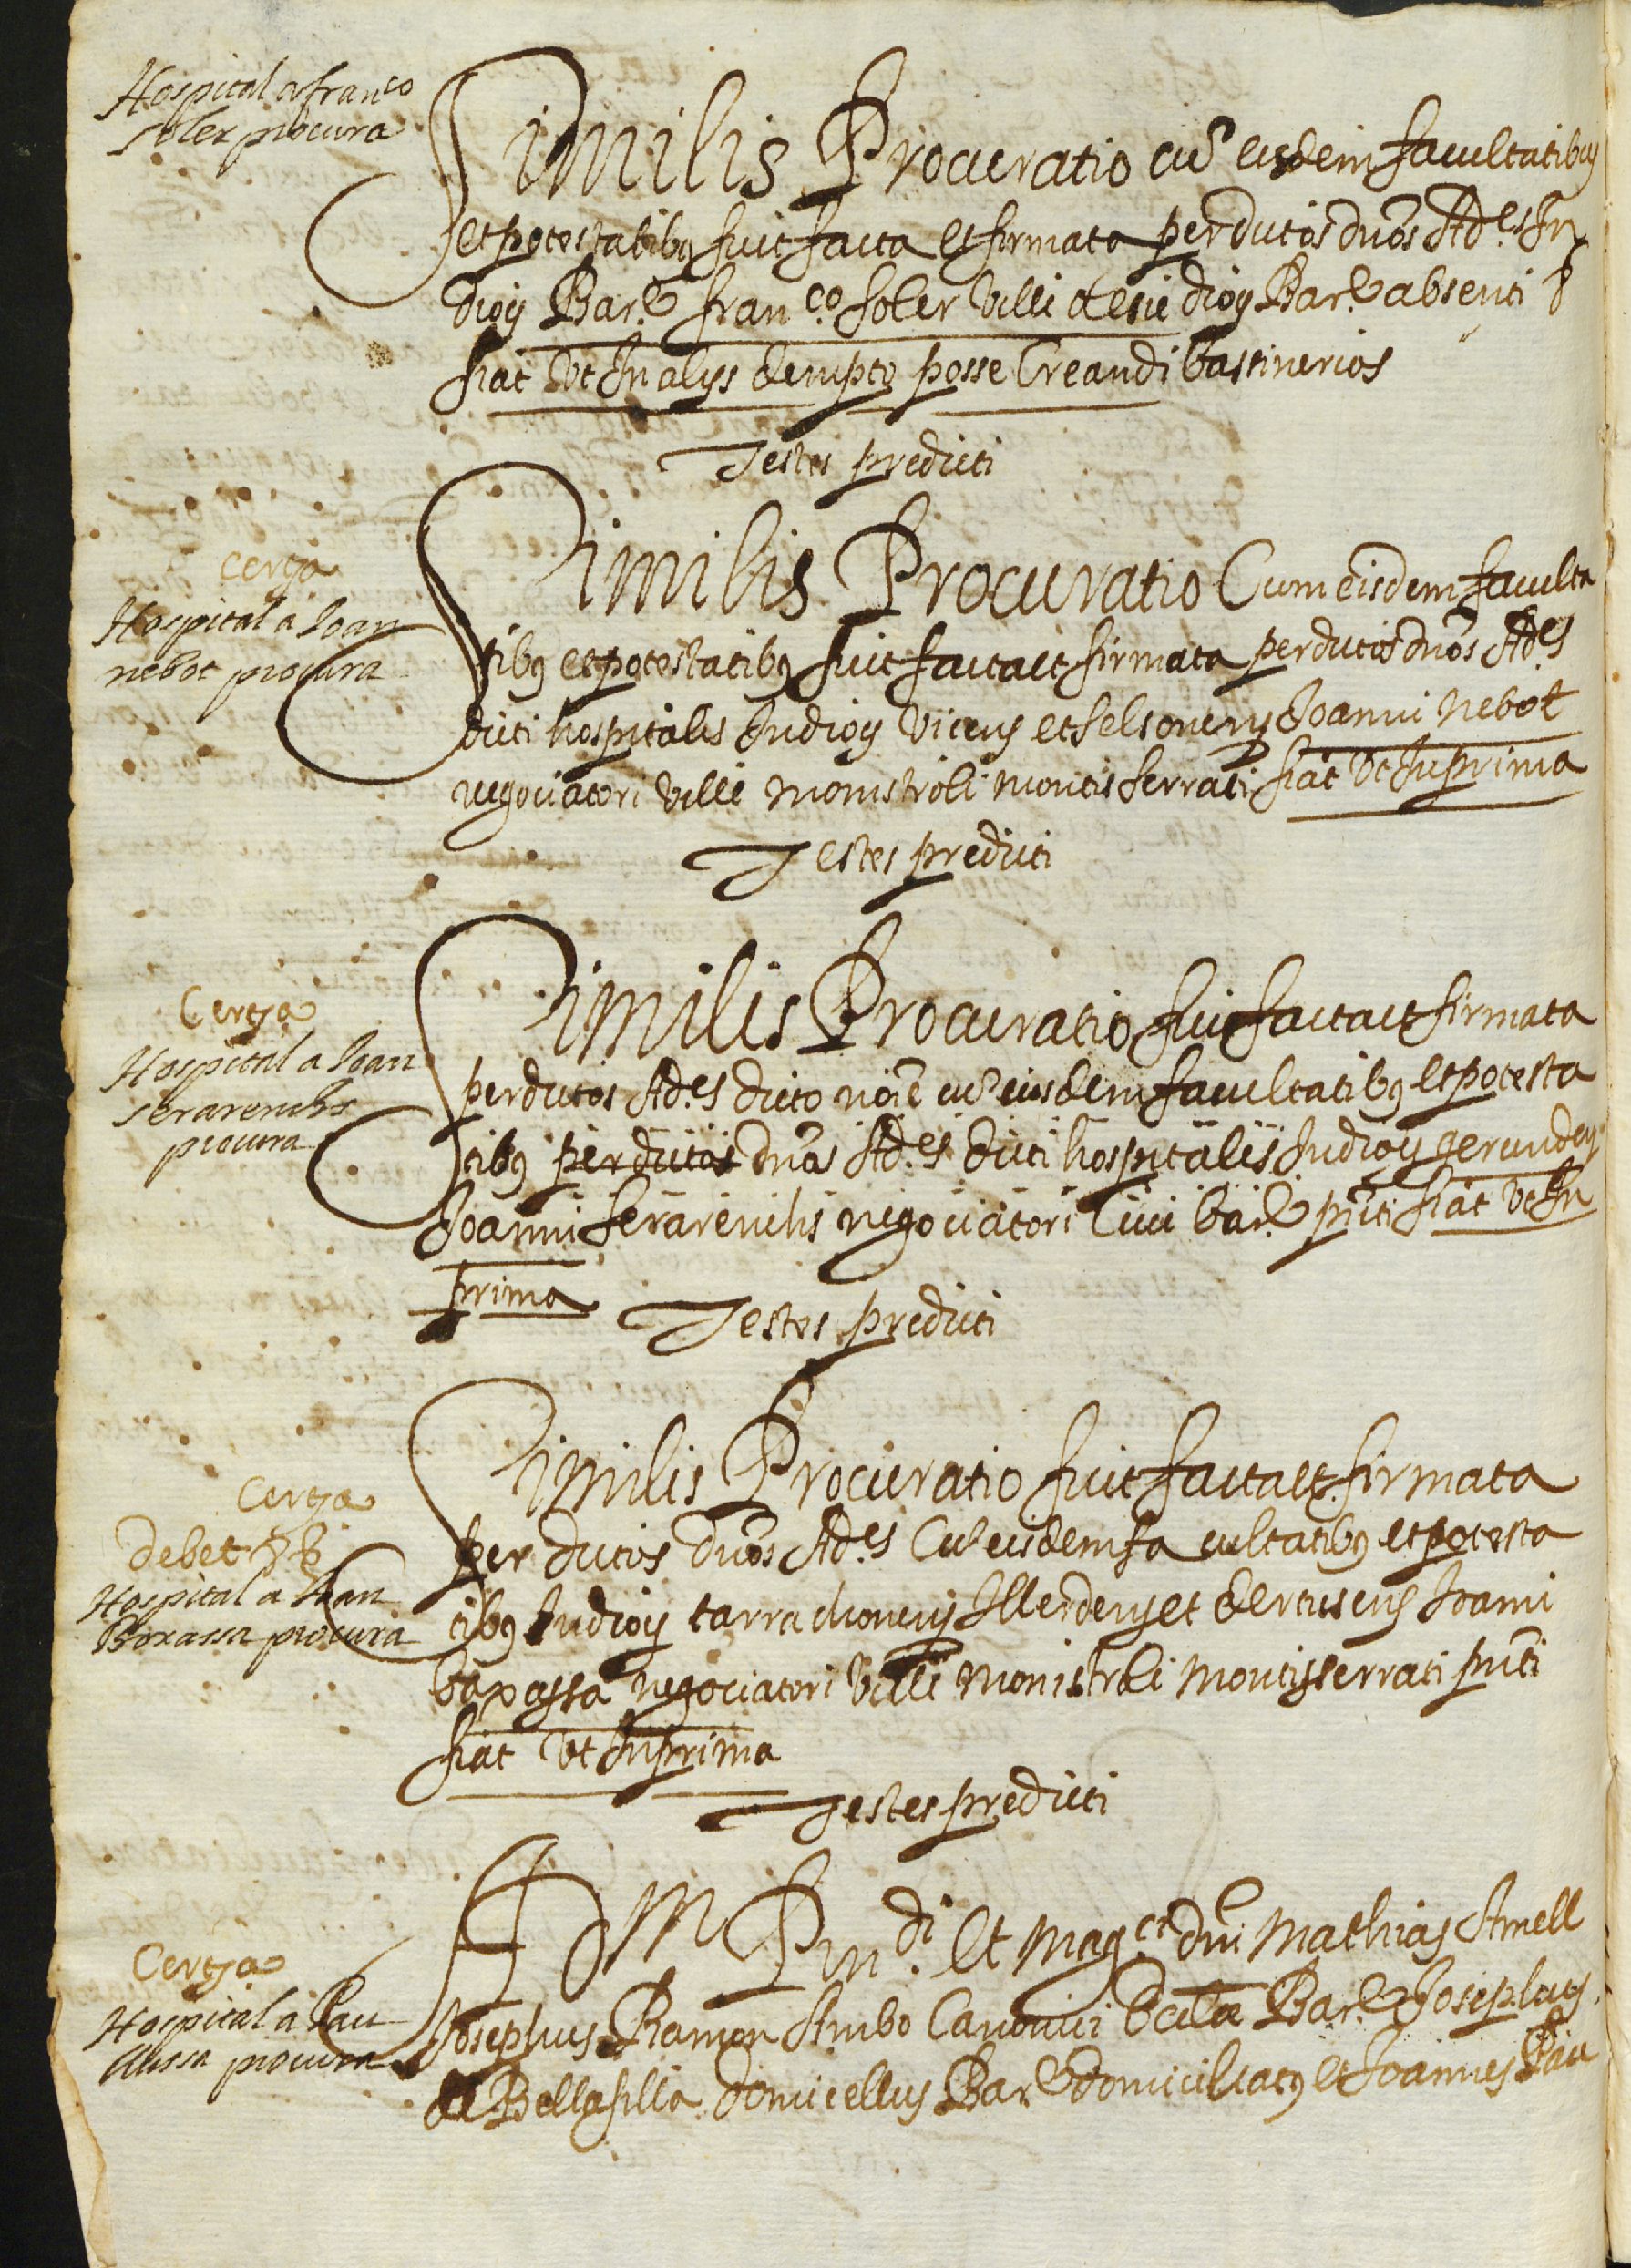 Hospital a fran.co
soler procura
Similis Procuratio cũ eisdem facultatibus
et potestatibus fuit facta et firmata per dictos dños Ad.es In
dioy Bar.e fran.co soler ville et esie dioy Bar.e absenti
fiat ut In alys dempto posse Creandi bastinerios
Testes predicti
certa
Hospital a Joan
nebot procura
Similis Procuratio Cum eisdem faculta
tibg et potestatibg fuit facta et firmata per dictos dños Ad.es
dicti hospitalis In dioy Vicens et selsonens Joanni Nebot
negociatori ville monistroli montisserrati fiat ut In prima
Testes predicti
Certa
Hospital a Joan
serarenchs
procura
Similis Procuratio fuit facta et firmata
per dictos Ad.es dicto noíe cũ eisdem facultatibg et potesta
tibg per dictos dños Ad.es dicti hospitalis In dioy gerunden
Joanni serarenchs negociatori Civi bar.e pñti fiat ut In
prima
Testes predicti
Certa
debet
Hospital a Joan
Boxassa procura
Similis Procuratio fuit facta et firmata
per dictos dños Ad.es Cũ eisdem facultatibg et potesta
tibg In dioy tarrachonens Illerdens et dertusens Joanni
boxassa negociatori ville monistroli montisserrati pñti
fiat ut In prima
Testes predicti
Certa
Hospital a Pau
clussa procura
Nos Adm Rn.di et mag.ci dñi Mathias Amell
Josephus Ramon Ambo Canonici Bar.e Josephus
de Bellafilla domicellus Bar.e domiciliatg et Joannes Pau